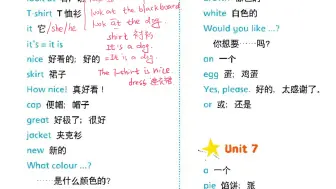 look at the blackboard
T-shirt T恤衫
look at the dog.
it 它/she/he
shirt 衬衫
it's = it is
It's a dog.
nice 好看的；好的
=It is a dog.
skirt 裙子
The T-shirt is nice
How nice! 真好看！
dress 连衣裙
cap 便帽；帽子
great 好极了；很好
jacket 夹克衫
new 新的
What colour ...?
……是什么颜色的？
white 白色的
Would you like ...?
你想要……吗？
an 一个
egg 蛋；鸡蛋
Yes, please. 好的，太感谢了。
or 或；还是
Unit 7
a 一个
pie 馅饼；派